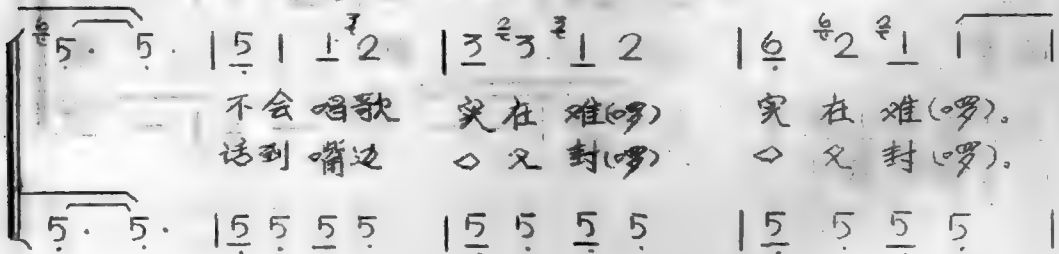 6 5· 5· | 5 1 1 2 | 3 2 3 1 2 | 6 6 2 2 1 1 |
不会唱歌 实在难(啰) 实在难(啰)。
话到嘴边 口又封(啰) 口又封(啰)。
5· 5· | 5 5 5 5 | 5 5 5 5 | 5 5 5 5 |